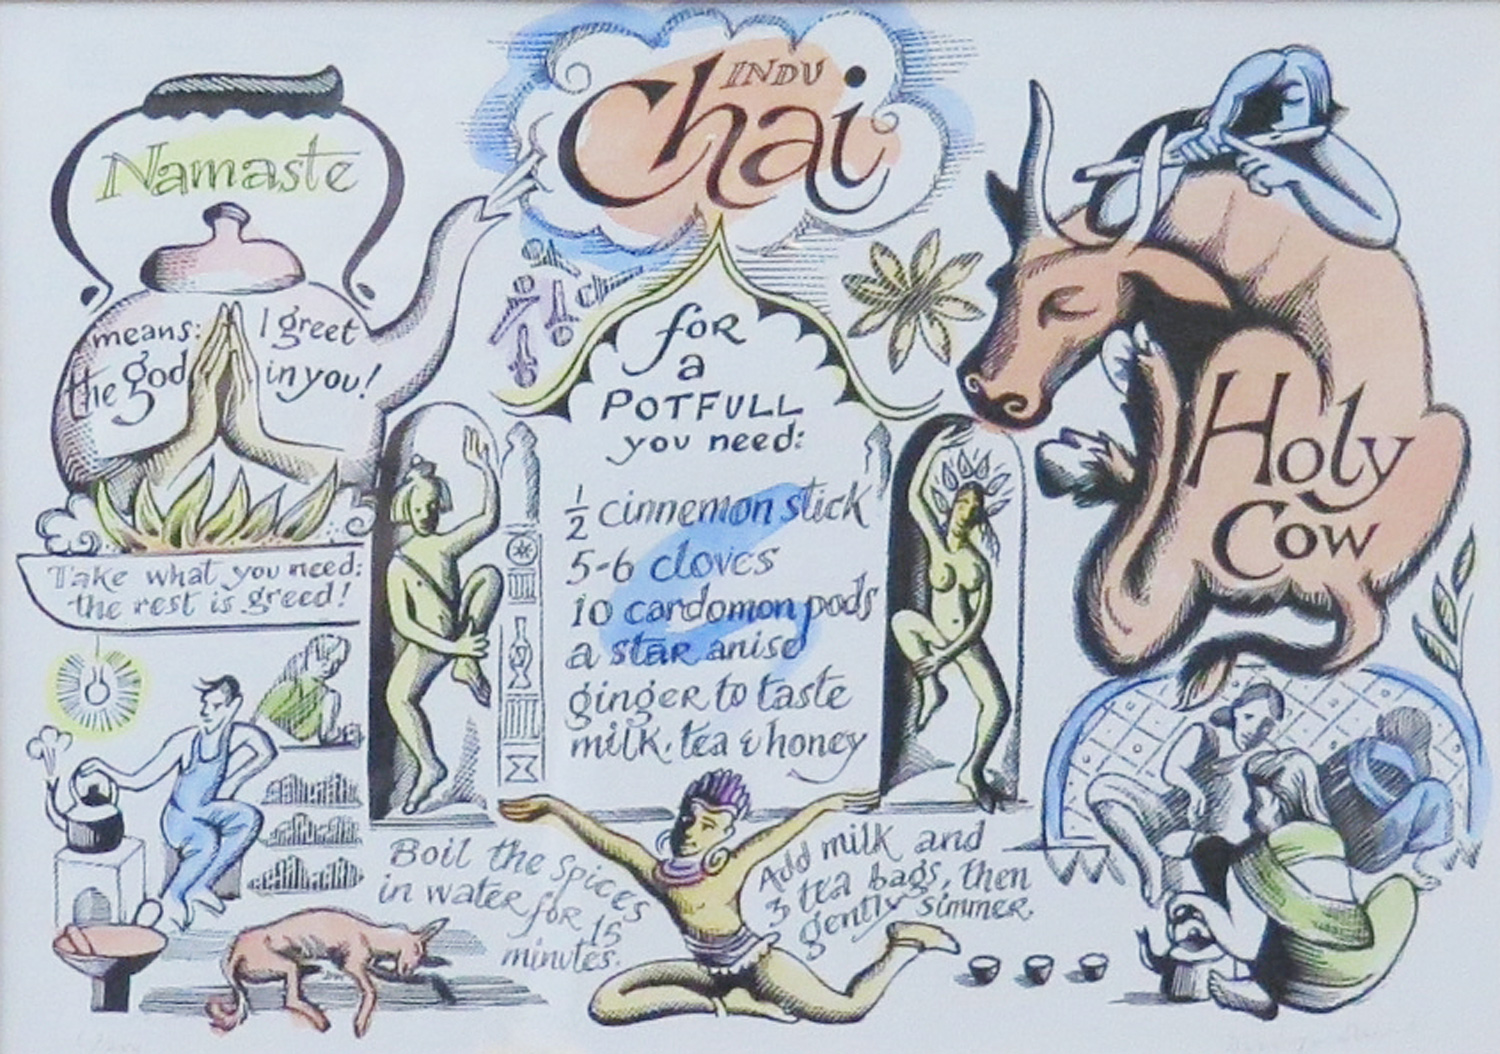 INDU
Chai
Namaste
means: I greet
the god in you!
Take what you need:
the rest is greed!
for
a
POTFULL
you need:
1/2 cinnemon stick
5-6 cloves
10 cardomon pods
a star anise
ginger to taste
milk, tea & honey
Holy
Cow
Boil the spices
in water for 15
minutes.
Add milk and
3 tea bags, then
gently simmer.